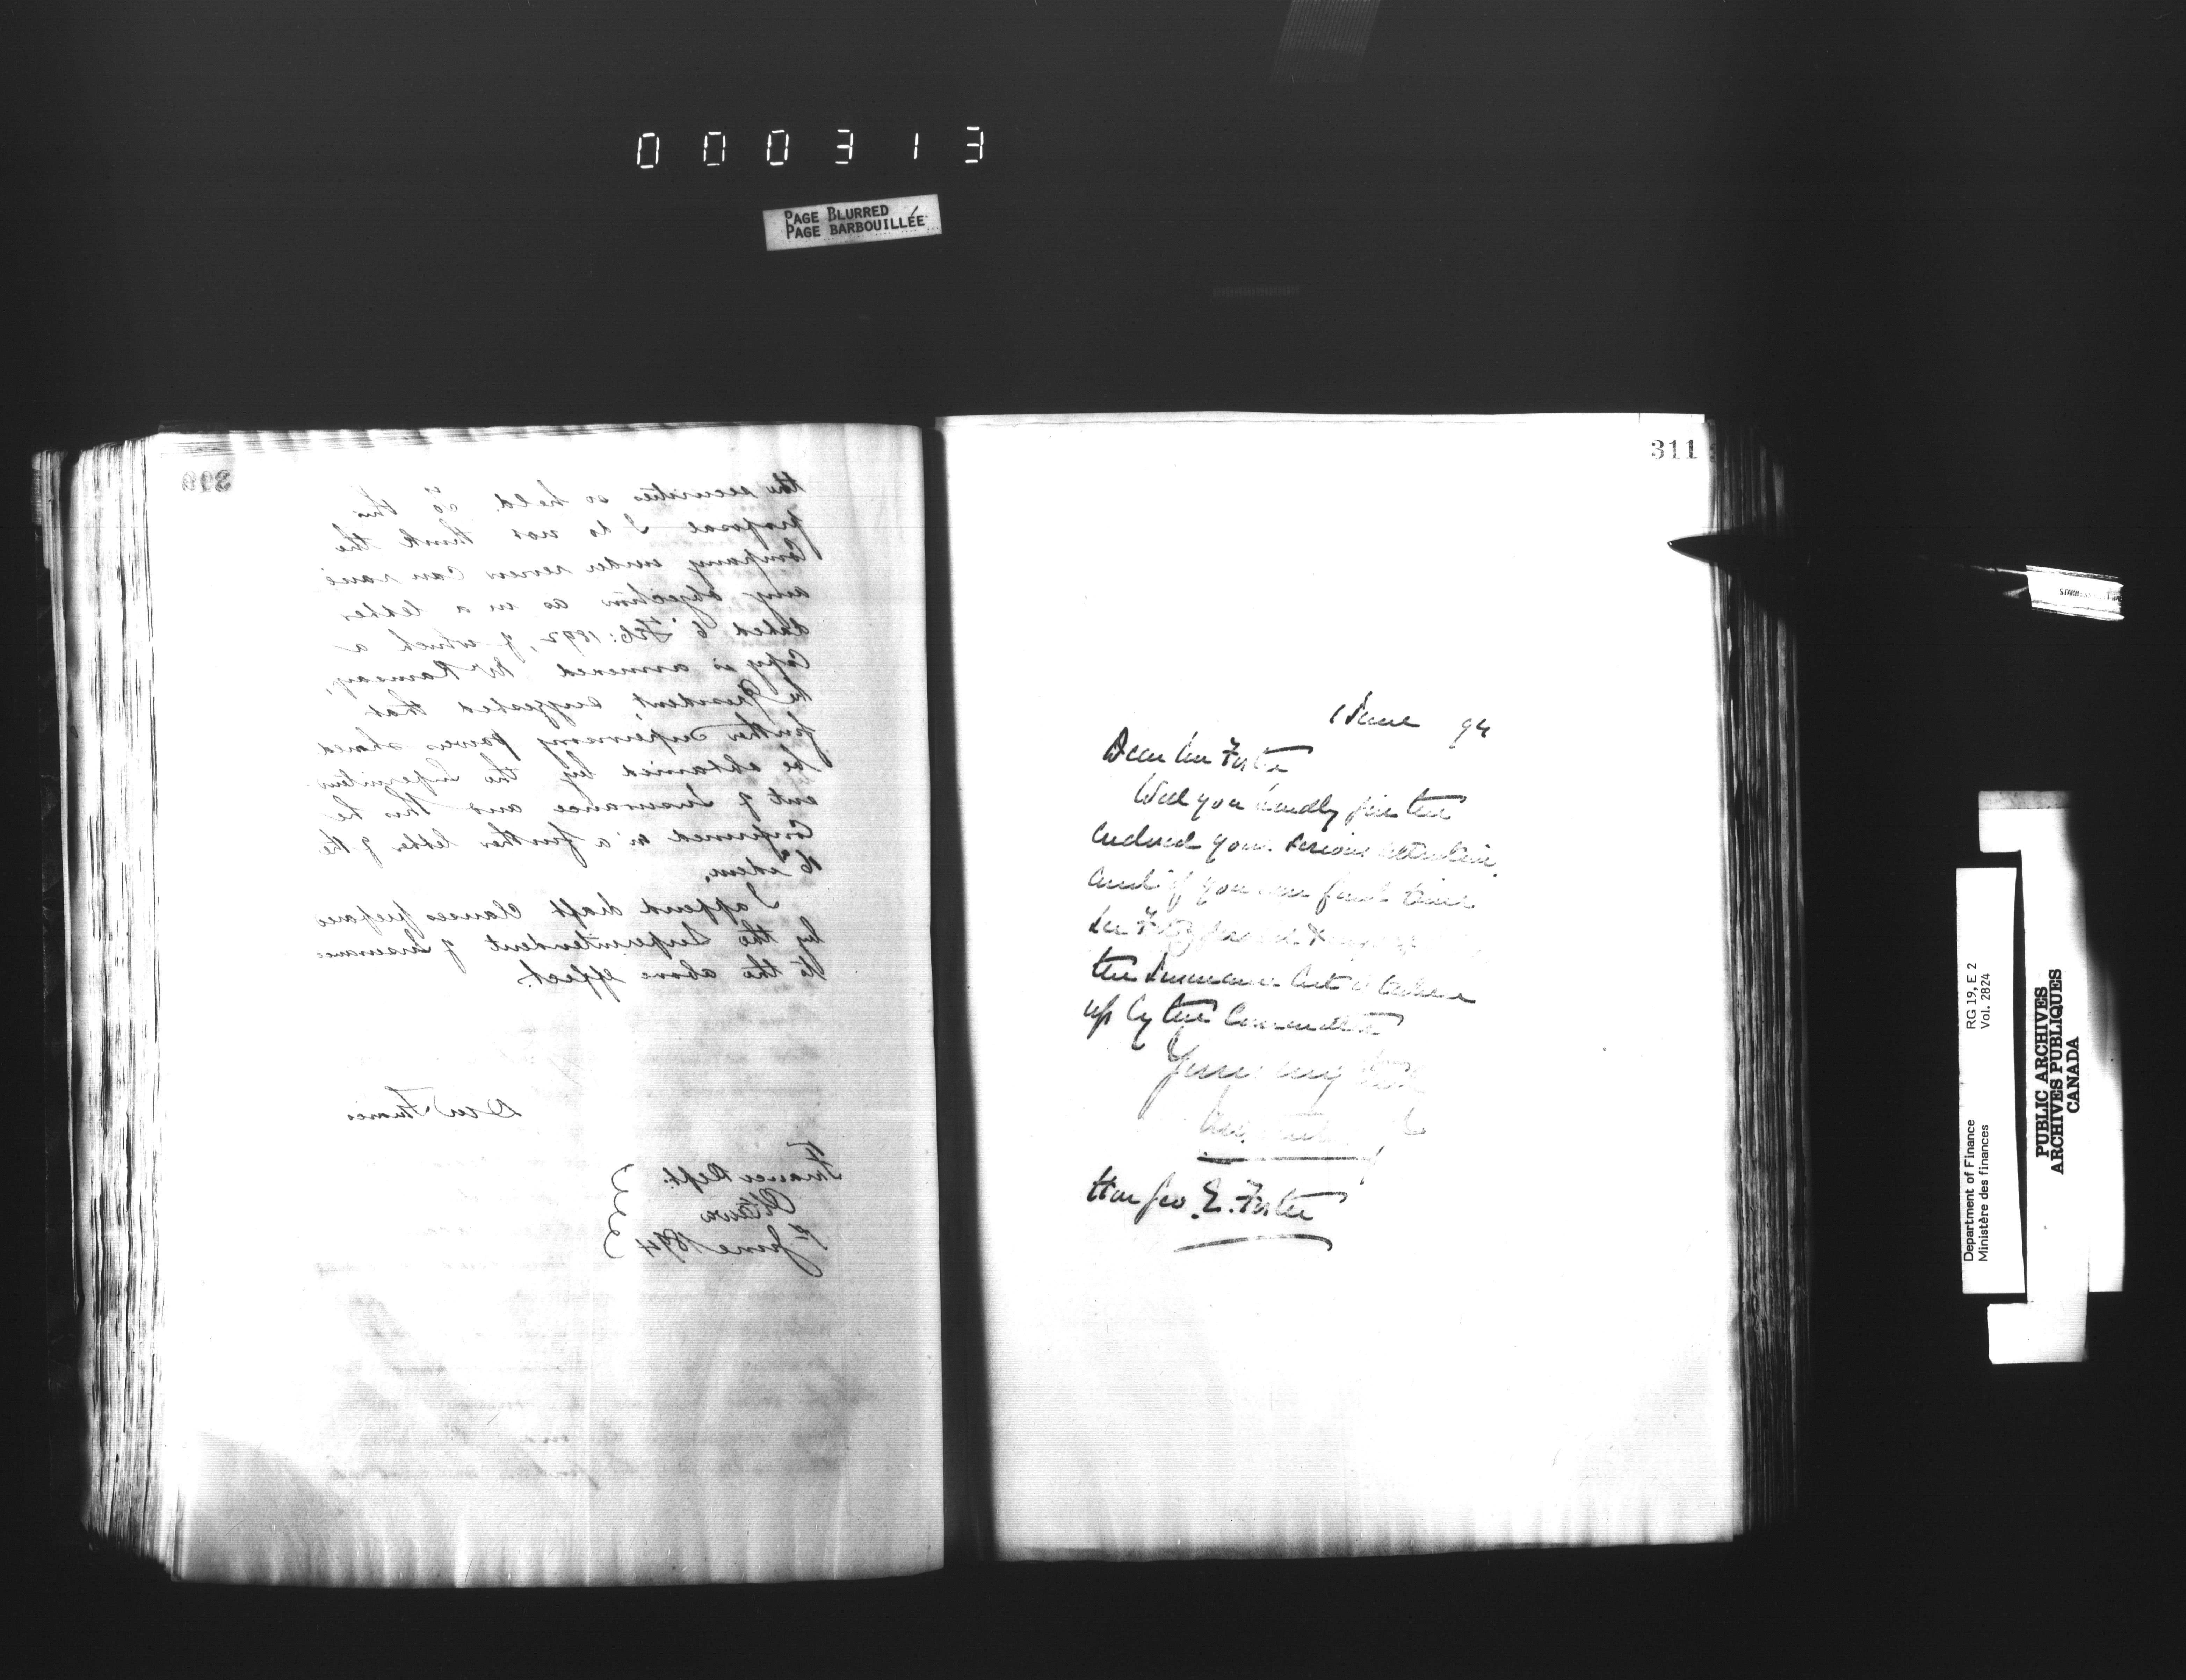 000313
PAGE BLURRED
PAGE BARBOUILLÉE
the securities so held. To this
proposal I do not think the
Company under review can raise
any objection as in a letter
dated 6 Feb: 1892, of which a
Copy is annexed Mr Ramsay,
the President, suggested that
further supervisory powers should
be obtained by the Superintend
ent of Insurance and this he
Confirmed in a further letter of the
16 idem.
I append draft Clauses prepared
by the Superintendent of Insurance
to the above effect.
Finance Dept.
Ottawa
June 1894
311
1 June 94
Dear Mr Foster
Will you kindly give the
enclosed your serious attention
and if you can find time
see Fitzgerald
the Insurance Act is taken
up by the Committee
Yours very
Hon Geo. E. Foster
RG 19, E 2
Vol. 2824
Department of Finance
Ministère des finances
PUBLIC ARCHIVES
ARCHIVES PUBLIQUES
CANADA